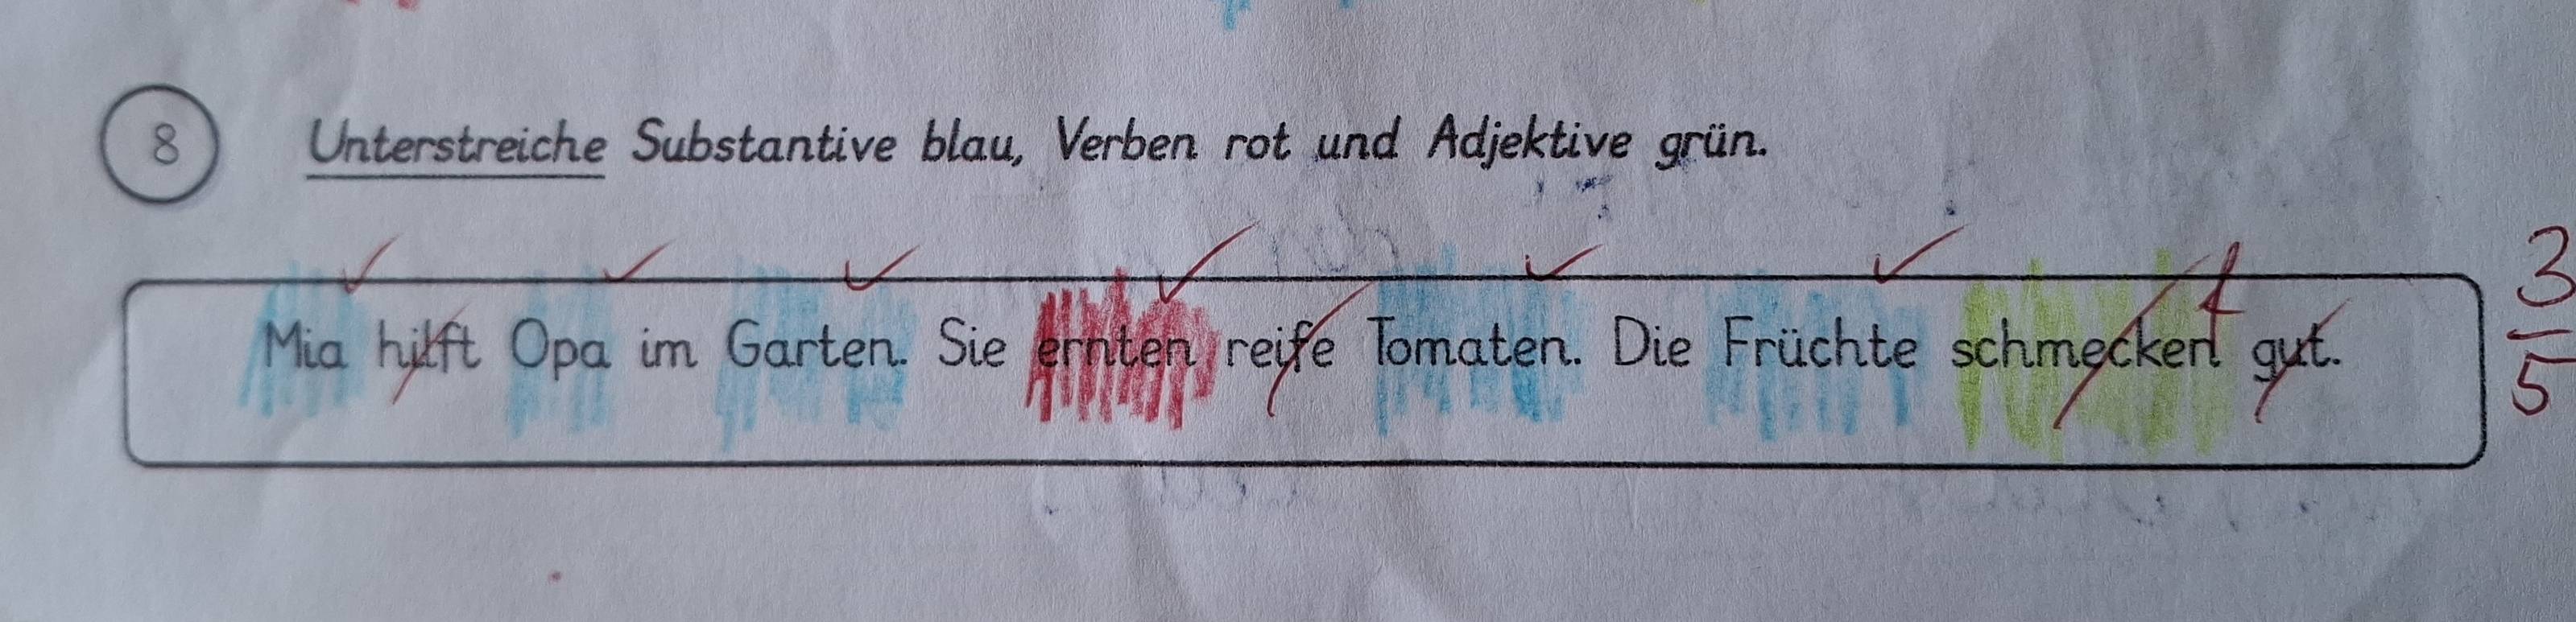 8 Unterstreiche Substantive blau, Verben rot und Adjektive grün.
Mia hilft Opa im Garten. Sie ernten reife Tomaten. Die Früchte schmecken gut.
3
5